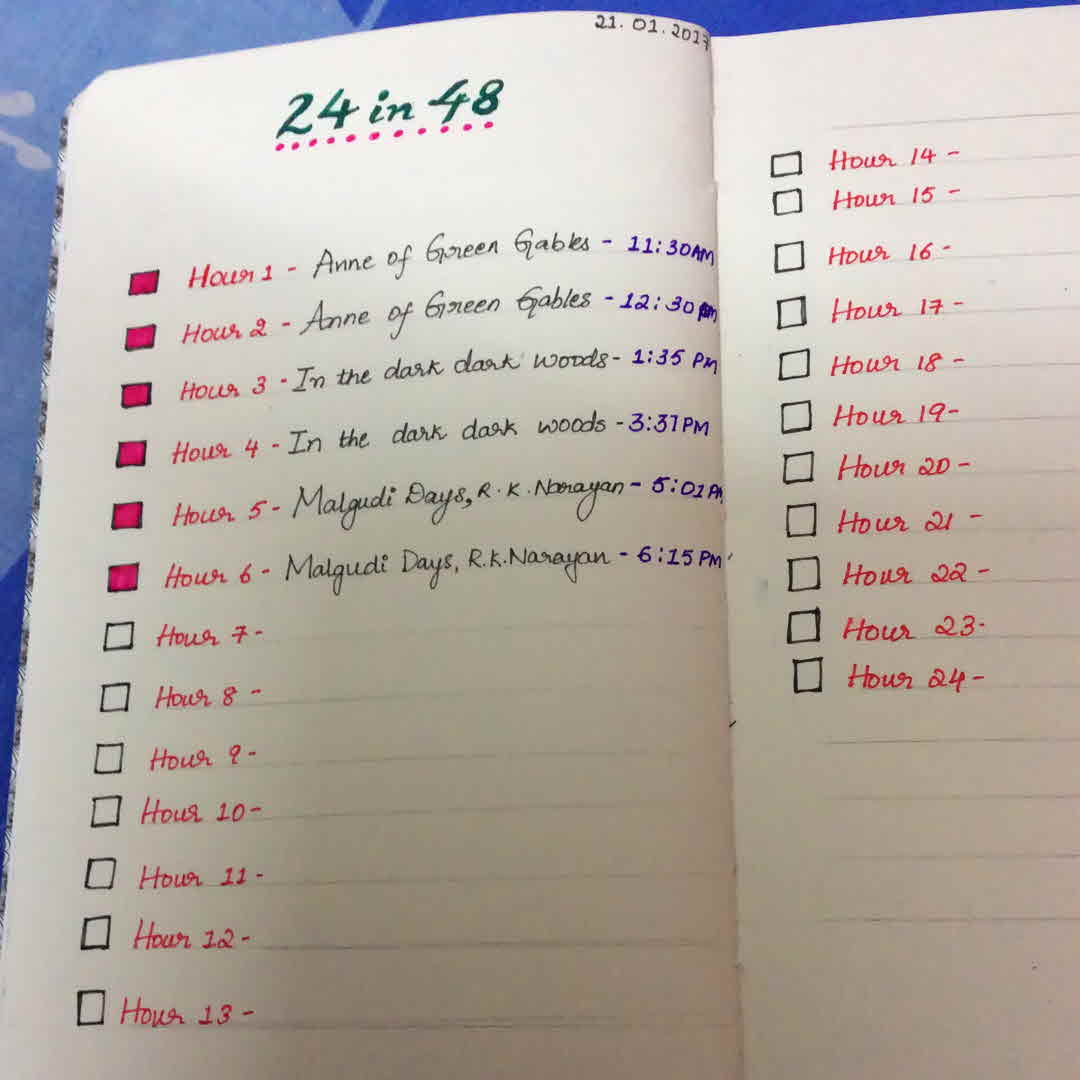 21.01.2017
24 in 48
Hour 1 - Anne of Green Gables - 11:30AM
Hour 2 - Anne of Green Gables - 12:30 pm
Hour 3 - In the dark dark woods - 1:35 PM
Hour 4 - In the dark dark woods - 3:37PM
Hour 5 - Malgudi Days, R.K.Narayan - 5:01PM
Hour 6 - Malgudi Days, R.K.Narayan - 6:15PM
Hour 7 -
Hour 8 -
Hour 9 -
Hour 10 -
Hour 11 -
Hour 12 -
Hour 13 -
Hour 14 -
Hour 15 -
Hour 16 -
Hour 17 -
Hour 18 -
Hour 19 -
Hour 20 -
Hour 21 -
Hour 22 -
Hour 23 -
Hour 24 -